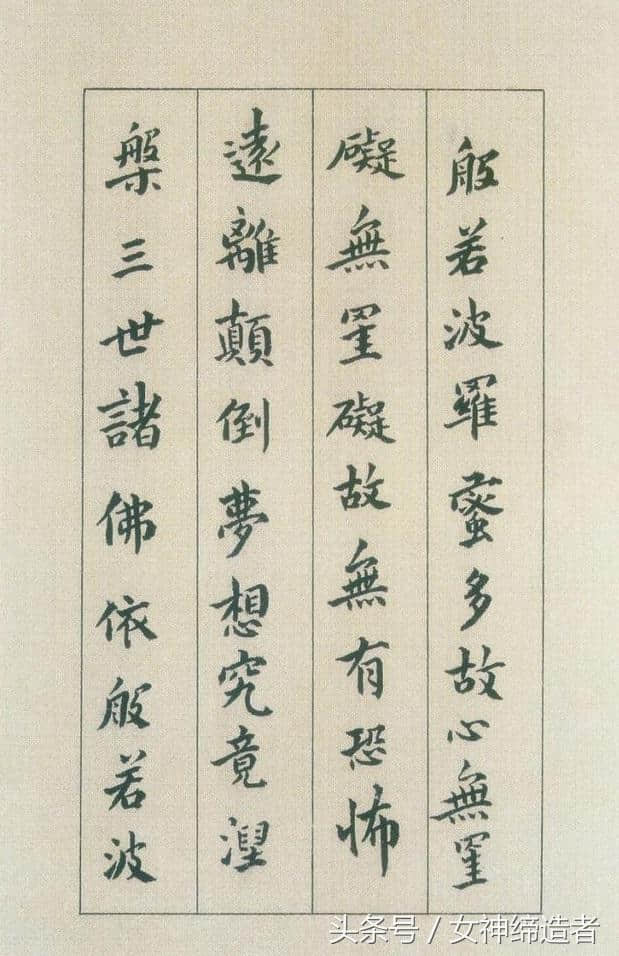 般若波羅蜜多故心無罣
礙無罣礙故無有恐怖
遠離顛倒夢想究竟涅
槃三世諸佛依般若波
头条号 / 女神缔造者